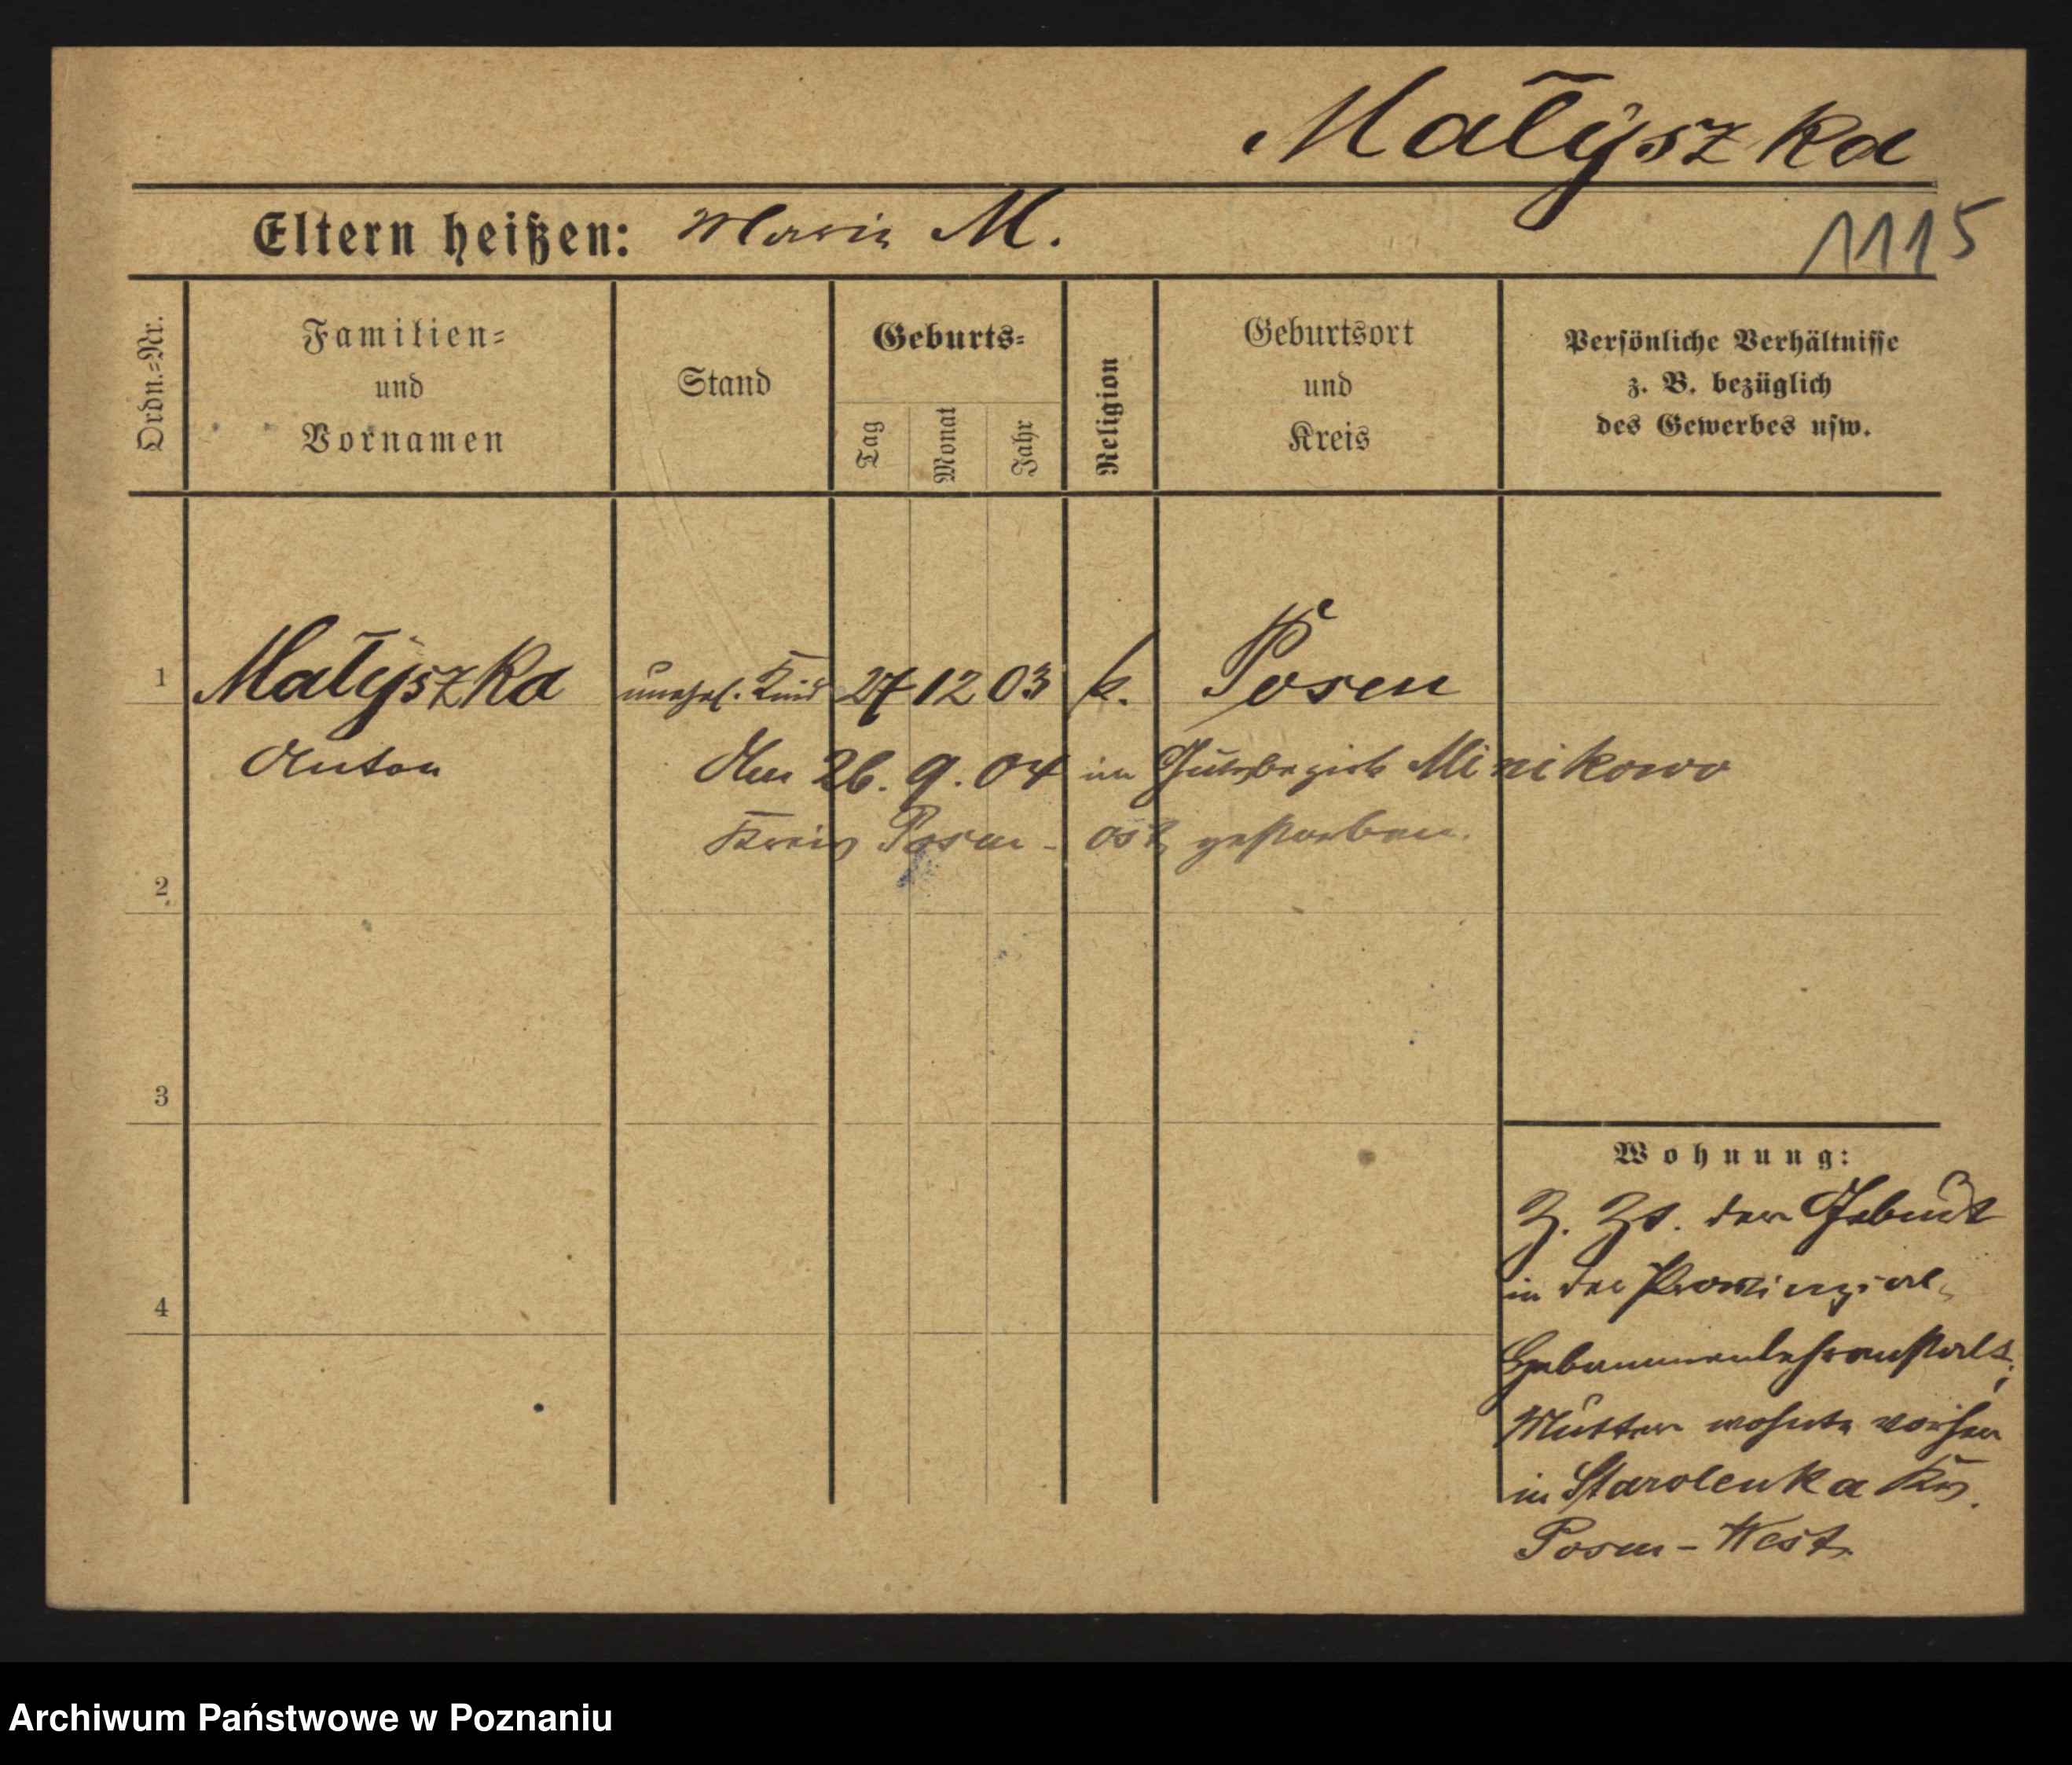 Małyszka
Eltern heißen: Maria M.
1115
Ordn.=Nr.
Familien=
und
Vornamen
Stand
Geburts=
Tag
Monat
Jahr
Religion
Geburtsort
und
Kreis
Persönliche Verhältnisse
z. B. bezüglich
des Gewerbes usw.
1 Małyszka unehel. Kind 27 12 03 k. Posen
Anton Am 26. 9. 04 im Gutsbezirk Minikowo
Kreis Posen - Ost gestorben.
2
3
4
Wohnung:
Z. Zt. der Geburt
in der Provinzial-
Hebammenlehranstalt;
Mutter wohnte vorher
in Starolenka Krs.
Posen-West.
Archiwum Państwowe w Poznaniu